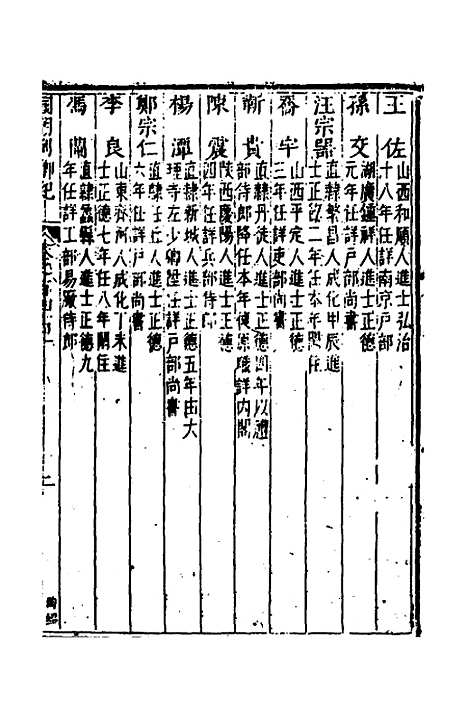 王佐 山西和順人進士弘治
十八年任詳南京戶部
孫交 湖廣鍾祥人進士正德
元年任詳戶部尚書
汪宗器 直隸繁昌人成化甲辰進
士正德二年任本年閒住
喬宇 山西平定人進士正德
三年任詳吏部尚書
靳貴 直隸丹徒人進士正德四年以禮
部侍郎降任本年復原職詳內閣
陳震 陝西慶陽人進士正德
四年任詳兵部侍郎
楊潭 直隸新城人進士正德五年由大
理寺左少卿陞任詳戶部尚書
鄭宗仁 直隸任丘人進士正德
六年任詳戶部尚書
李良 山東齊河人成化丁未進
士正德七年任八年閒住
馮蘭 直隸蠡縣人進士正德九
年任詳工部易州侍郎
國朝列卿紀